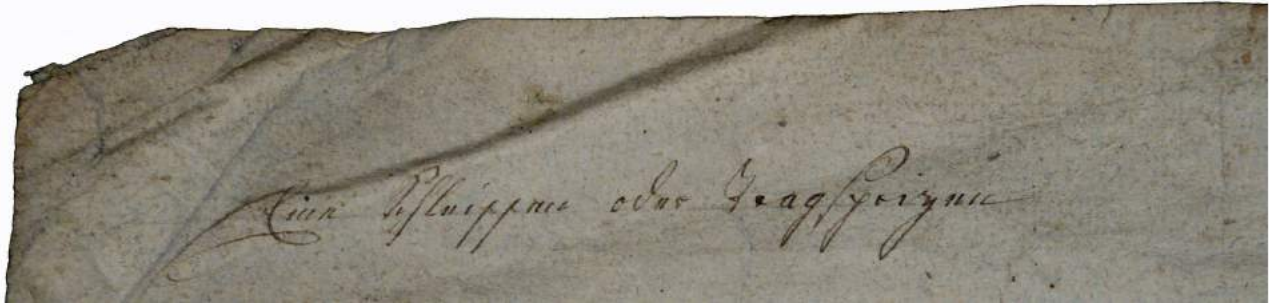 Eine Schleippen oder Tragspritzen